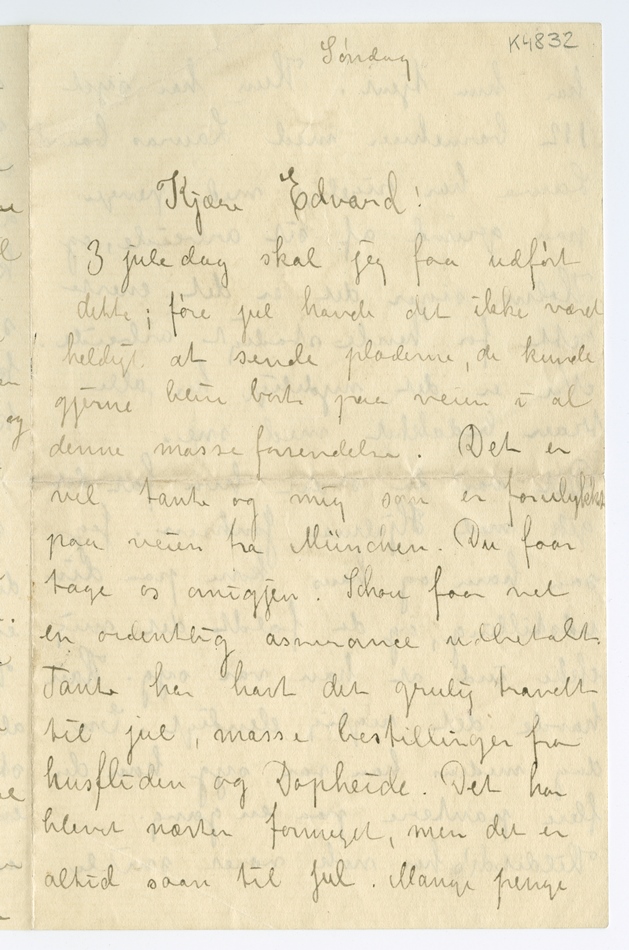 K4832
Søndag
Kjære Edvard!
3 juledag skal jeg faa udført
dette; føre jul havde det ikke været
heldigt at sende pladerne, de kunde
gjerne blein bort paa veien i al
denne masse forsendelse. Det er
vel tante og mig som er forulykket
paa veien fra München. Du faar
tage os omigjen. Schou faar vel
en ordentlig assurance udbetalt.
Tante har havt det grulig travelt
til jul, masse bestillinger fra
husfliden og Dopheide. Det har
blevet næsten formeget, men det er
altid saan til jul. Mange penge
og